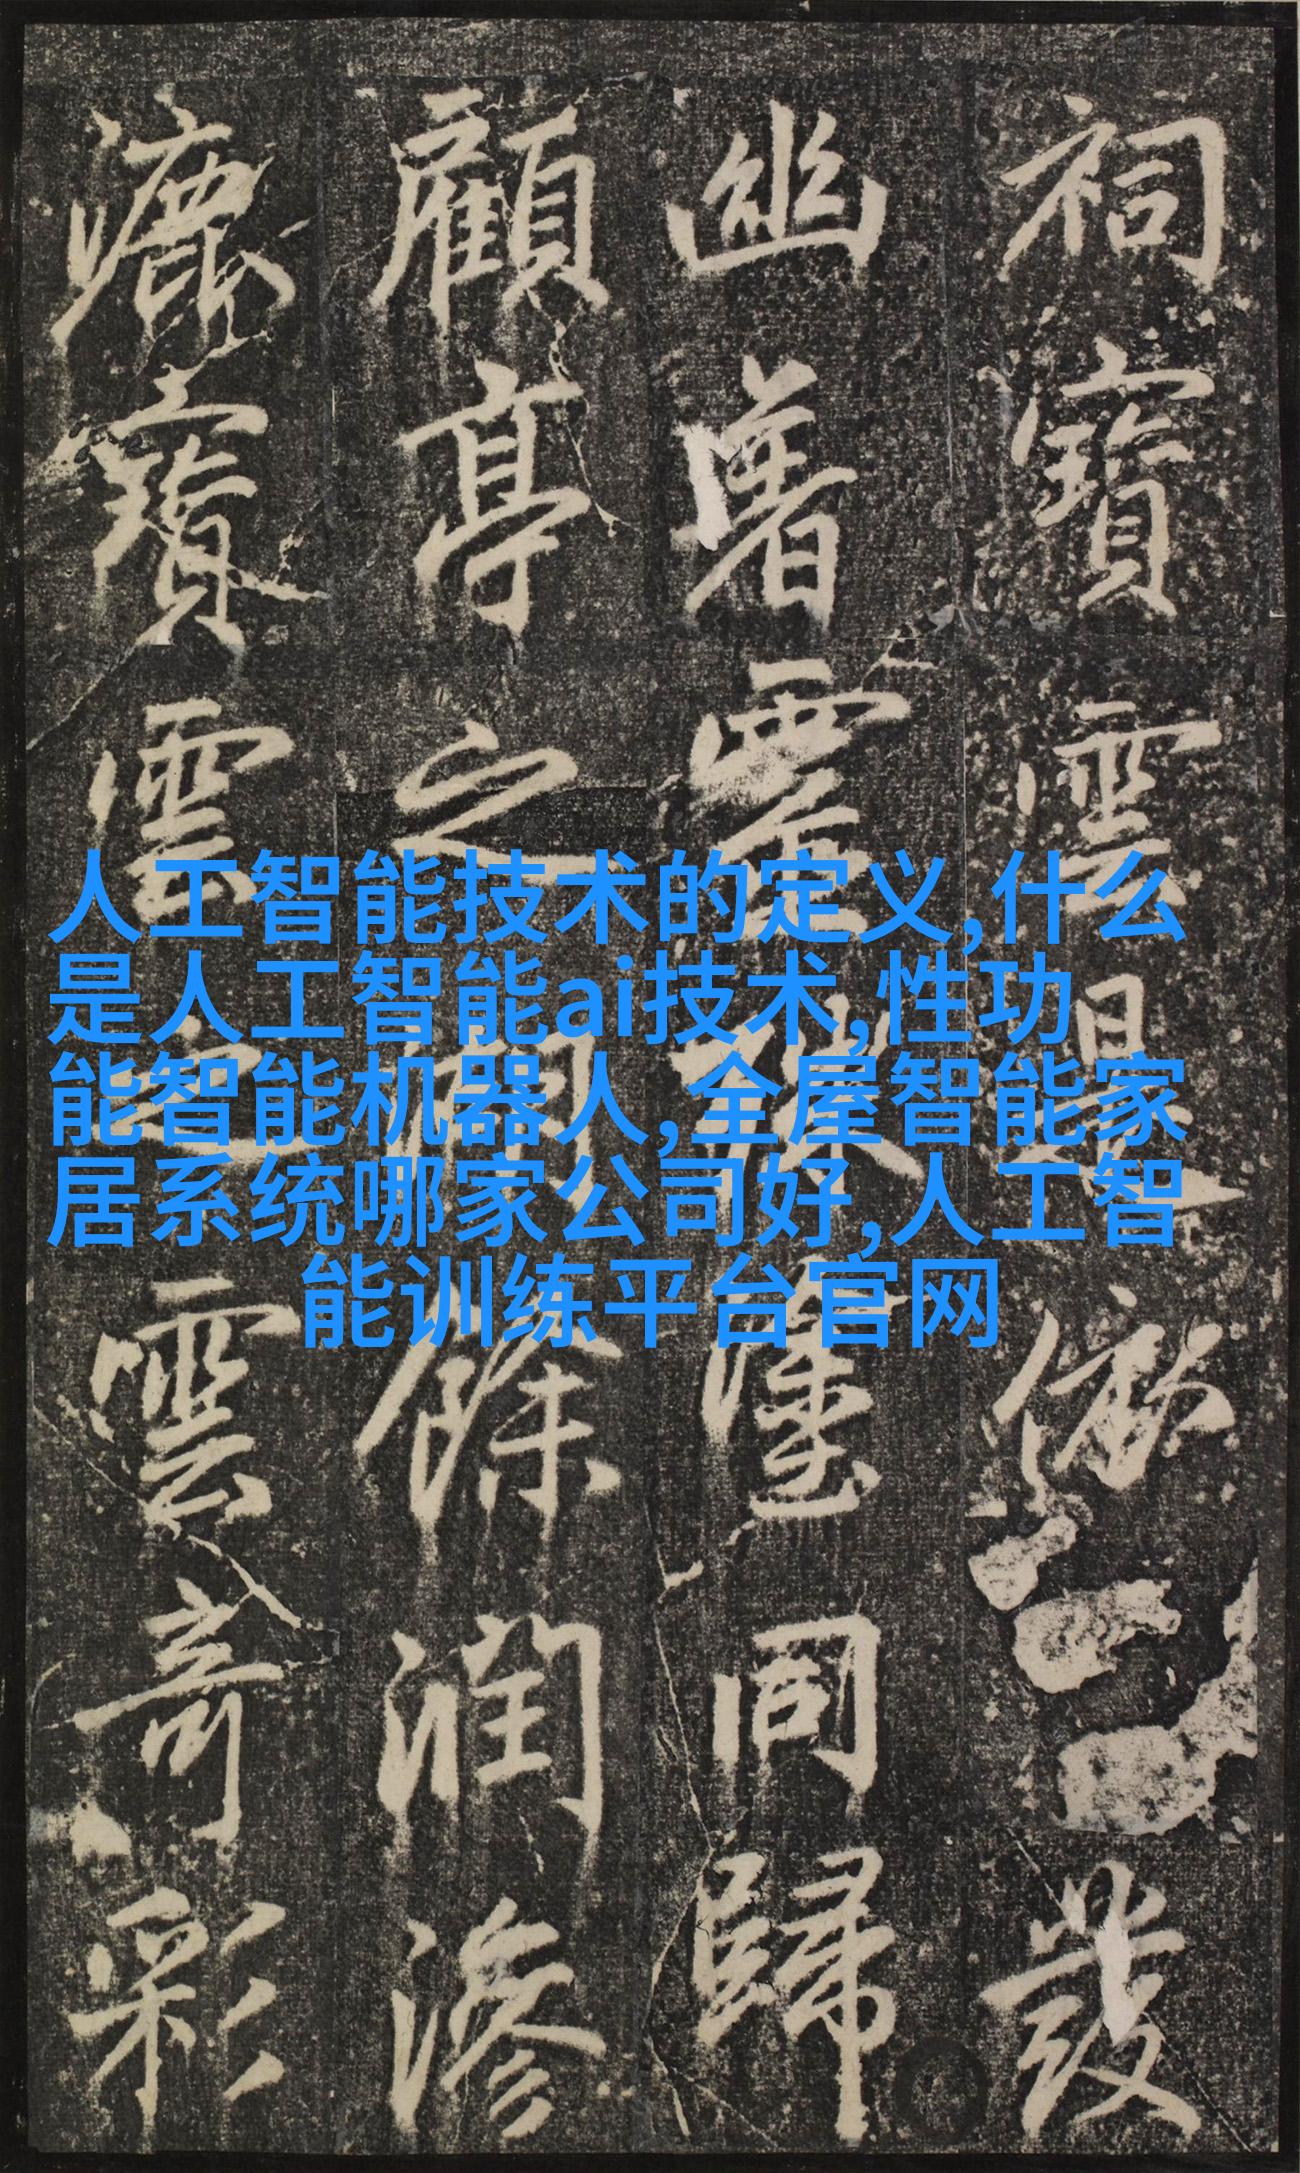 人工智能技术的定义,什么
是人工智能ai技术,性功
能智能机器人,全屋智能家
居系统哪家公司好,人工智
能训练平台官网
祠寶雲是發
幽同歸
顧亭之餘潤滲
漉寶雲之雲奇彩